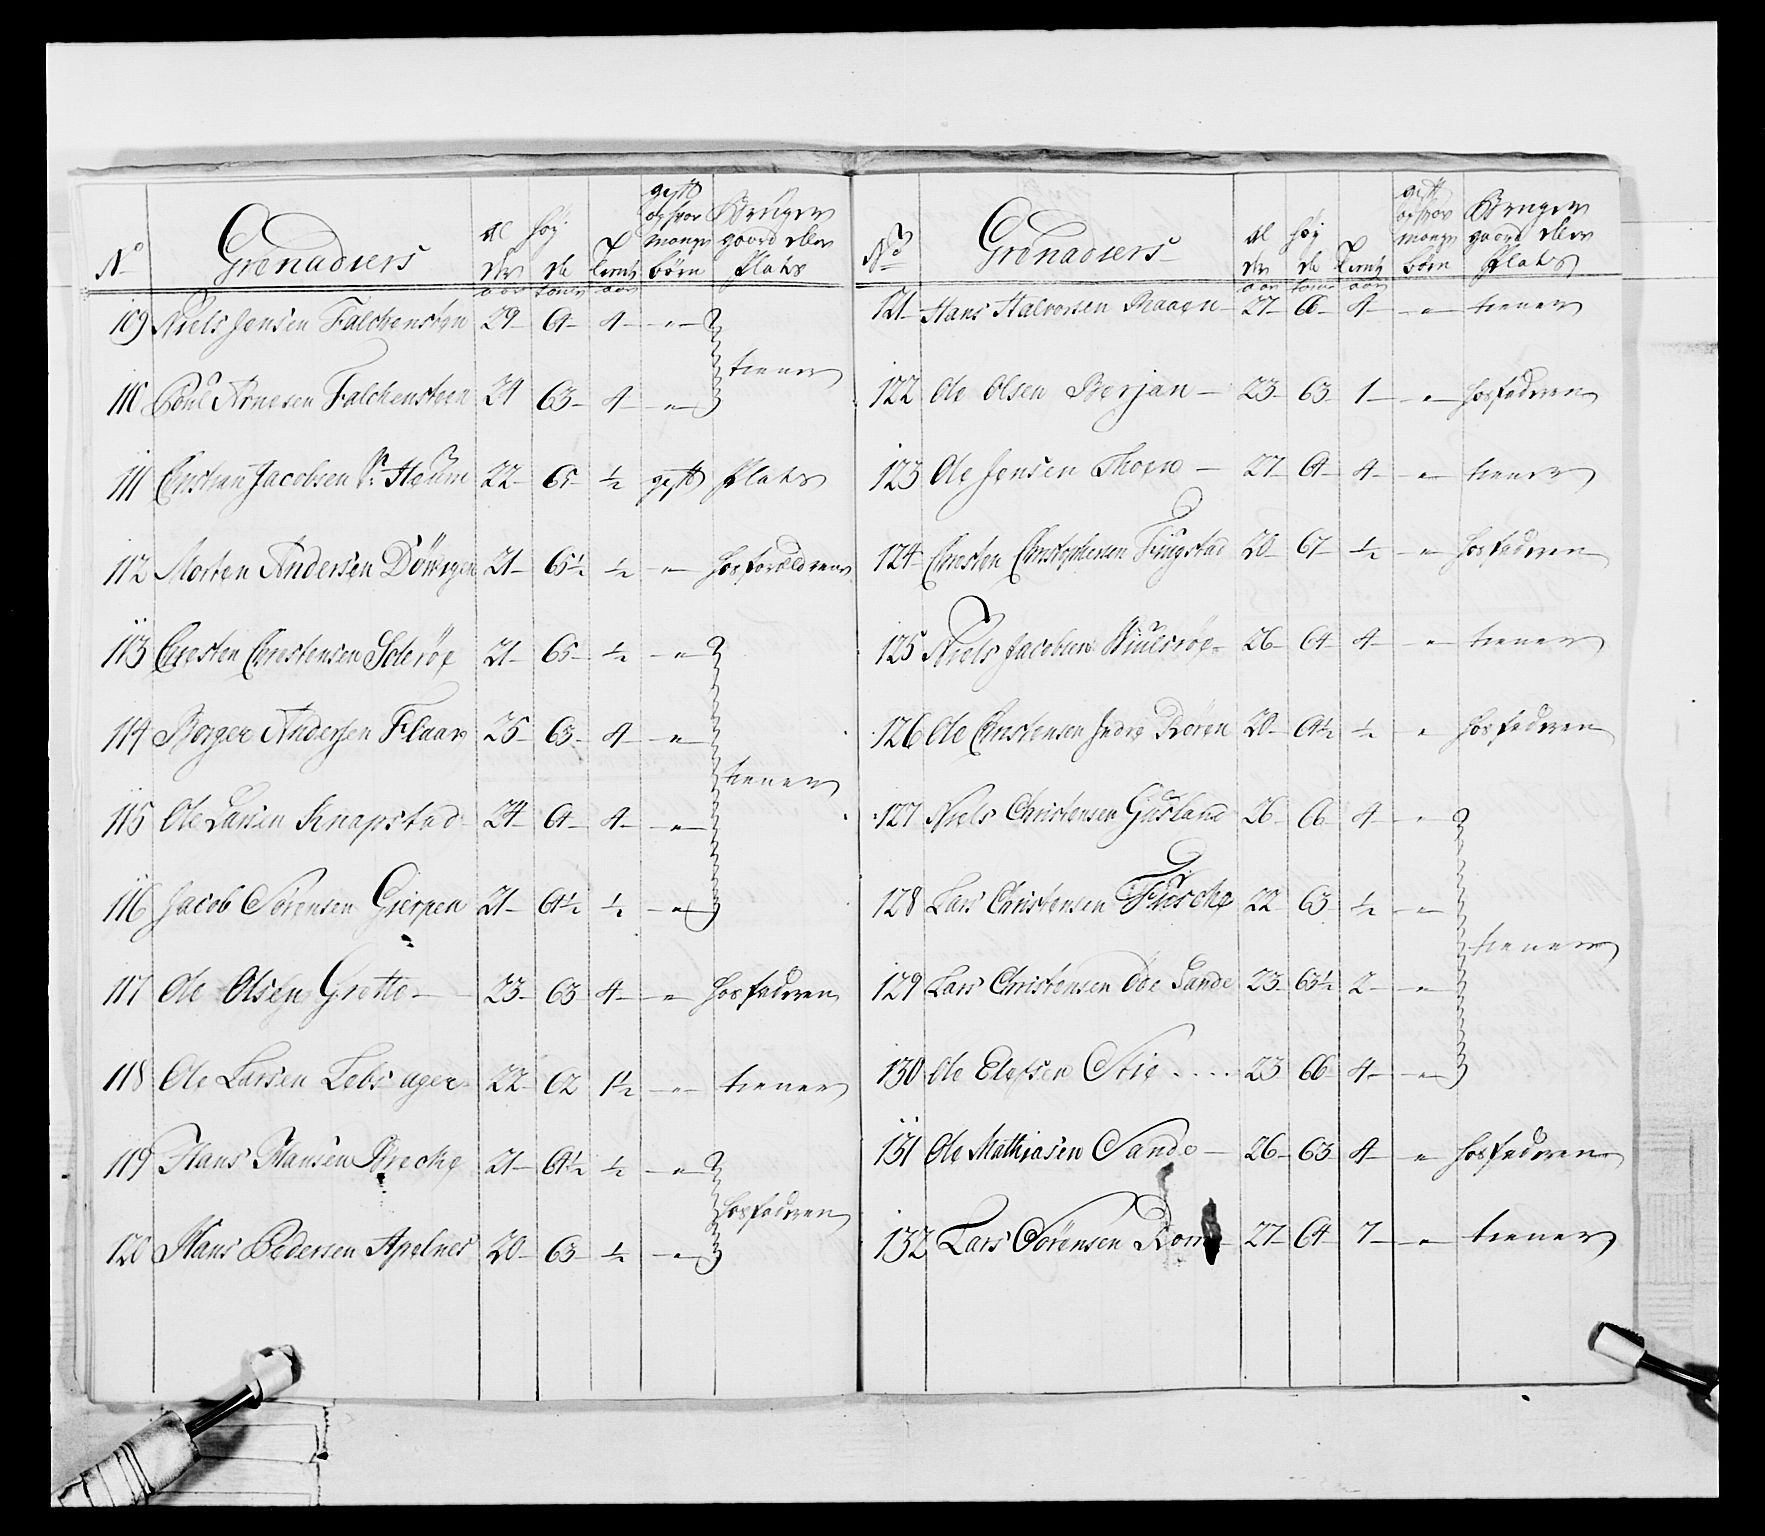 No Grenadiers al der aar høy de tom̄e xerceret aar gyft og hvor mange børn Bruger gaard eller Plads
109 Niels Jensen Falchensteen 29 64 4 "
tiener
110 Poul Arnesen Falchensteen 24 63 4 "
111 Christian Jacobsen Heüm 22 65 ½ gyft Plads
112 Morten Andersen 21 65½ ½ " hos forældrene
113 Christen Christensen Solerøe 21 65 ½ "
114 Borger Andersen Flaar 25 63 4 "
tiener
115 Ole Larsen Knapstad 24 64 4 "
116 Jacob Sörensen Gierpen 21 64½ ½ "
117 Ole Olsen Grette 23 63 4 " hos faderen
118 Ole Larsen Lebsager 22 62 1½ " tiener
119 Hans Hansen Breche 21 64½ ½ "
hos faderen
120 Hans Pedersen Apelnes 20 63 ½ "
No Grenadiers al der aar høy de tom̄e xerceret aar gyft og hvor mange børn Bruger gaard eller Plads
121 Hans Halvorsen Raaen 27 66 4 " tiener
122 Ole Olsen Berjan 23 63 1 " hos faderen
123 Ole Jensen Thoen 27 64 4 " tiener
124 Christen Christophersen Füugstad 20 67 ½ " hos faderen
125 Niels Jacobsen 26 64 4 " tiener
126 Ole Christensen Indre Roren 20 64½ ½ " hos faderen
127 Niels Christensen Gjüsland 26 66 4 "
128 Lars Christensen Füsche 22 63 ½ "
tiener
129 Lars Christensen Øde Sande 23 63½ 2 "
130 Ole Elefsen Stie 23 66 4 "
131 Ole Mathiasen Sande 26 63 4 " hos faderen
132 Lars Sörensen 27 64 7 " tiener